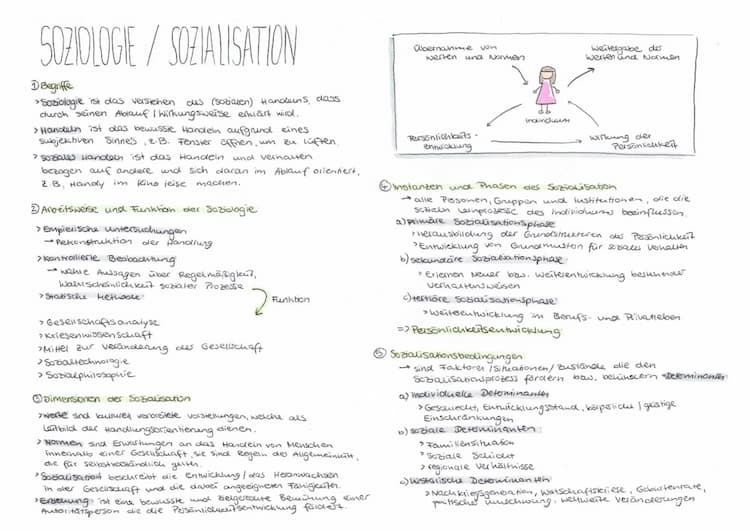 SOZIOLOGIE / SOZIALISATION
① Begriffe
> Soziologie ist das verstehen des (sozialen) Handelns, dass
durch seinen Ablauf / Wirkungsweise erklärt wird.
> Handeln ist das bewusste Handeln aufgrund eines
subjektiven Sinnes, z.B. Fenster öffnen, um zu lüften.
> soziales Handeln ist das Handeln und verhalten
bezogen auf andere und sich daran im Ablauf orientiert,
z.B. Handy im Kino leise machen.
② Arbeitsweise und Funktion der Soziologie
> Empirische Untersuchungen
→ Rekonstruktion der Handlung
> Kontrollierte Beobachtung
→ nähe Aussagen über Regelmäßigkeit,
Wahrscheinlichkeit sozialer Prozesse
> Statische Methode
Funktion
> Gesellschaftsanalyse
> Krisenwissenschaft
> Mittel zur Veränderung der Gesellschaft
> Sozialtechnologie
> Sozialphilosophie
③ Dimensionen der Sozialisation
> Werte sind kulturell vorgelebte Vorstellungen, welche als
Leitbild der Handlungsorientierung dienen.
> Normen sind Erwartungen an das Handeln von Menschen
innerhalb einer Gesellschaft, sie sind Regeln der Allgemeinheit,
die für selbstverständlich gelten.
> Sozialisation beschreibt die Entwicklung / das Heranwachsen
in der Gesellschaft und die dabei angeeigneten Fähigkeiten.
> Erziehung ist eine bewusste und zielgerichtete Bemühung einer
Autoritätsperson die die Persönlichkeitsentwicklung fördert.
Übernahme von
Werten und Normen
Weitergabe der
Werte und Normen
Individuum
Persönlichkeits-
entwicklung
Wirkung der
Persönlichkeit
④ Instanzen und Phasen der Sozialisation
→ alle Personen, Gruppen und Institutionen, die die
sozialen Lernprozesse des Individuums beeinflussen.
a) primäre Sozialisationsphase
> Herausbildung der Grundstrukturen der Persönlichkeit
> Entwicklung von Grundmustern für soziales Verhalten
b) sekundäre Sozialisationsphase
> Erlernen Neuer bzw. Weiterentwicklung bestehender
Verhaltensweisen
c) tertiäre Sozialisationsphase
> Weiterentwicklung im Berufs- und Privatleben
=> Persönlichkeitsentwicklung
⑤ Sozialisationsbedingungen
→ sind Faktoren / Situationen / Zustände die den
Sozialisationsprozess fördern bzw. behindern = Determinanten
a) individuelle Determinanten
> Geschlecht, Entwicklungsstand, körperliche / geistige
Einschränkungen
b) soziale Determinanten
> Familiensituation
> soziale Schicht
> regionale Verhältnisse
c) historische Determinanten
> Nachkriegsgeneration, Wirtschaftskrise, Geburtenrate,
politischer Umschwung, weltweite Veränderungen